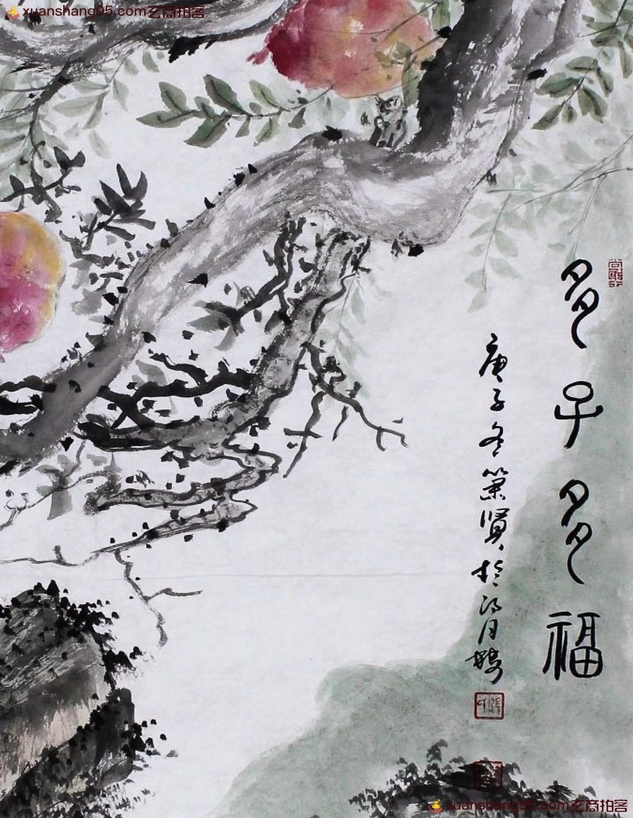 xuanshang95.com艺商拍客
多子多福
庚子冬 贤於 月
xuanshang95.com艺商拍客